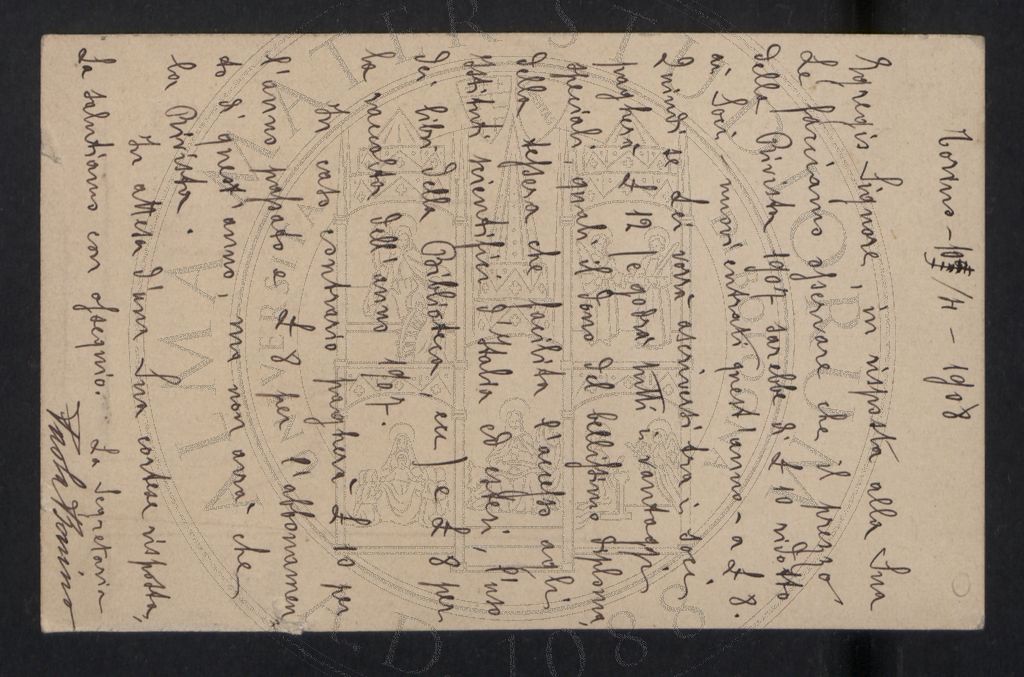 Torino - /4 - 1908
Egregio Signore, in risposta alla Sua
Le facciamo osservare che il prezzo
della Rivista 1907 sarebbe di £ 10 ridotto
ai Soci - nuovi entrati quest'anno - a £ 8.
Quindi se Lei vorrà ascriversi tra i soci
pagherà £ 12 (e godrà tutti i vantaggi
speciali, quali il dono del bellissimo diploma,
della tessera che facilita l'accesso agli
istituti scientifici d'Italia ed esteri, l'uso
dei libri della Biblioteca, ecc) e £ 8 per
la raccolta dell'anno 1907.
In caso contrario pagherà £ 10 per
l'anno passato e £ 8 per l'abbonamen
to di quest'anno, ma non avrà che
la Rivista.
In attesa d'una Sua cortese risposta,
La salutiamo con ossequio. La Segretaria
ALMA MATER STUDIORUM
A.D. 1088